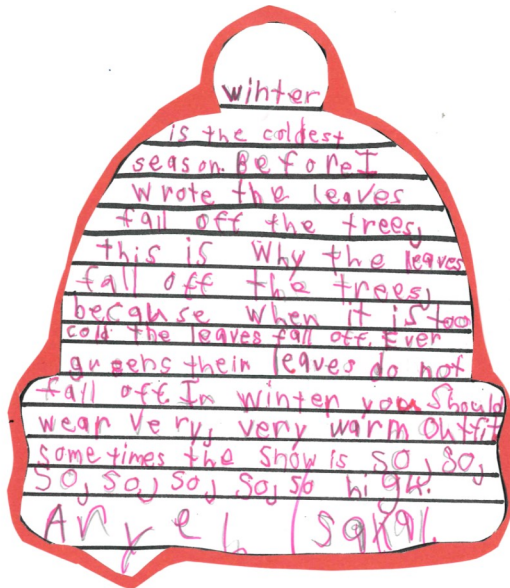 winter
is the coldest
season. Before I
wrote the leaves
fall off the trees,
this is why the leaves
fall off the trees,
because when it is too
cold the leaves fall off. Ever
their leaves do not
fall off. In winter you should
wear very, very warm outfit
some times the snow is so, so,
so, so, so, so, so high.